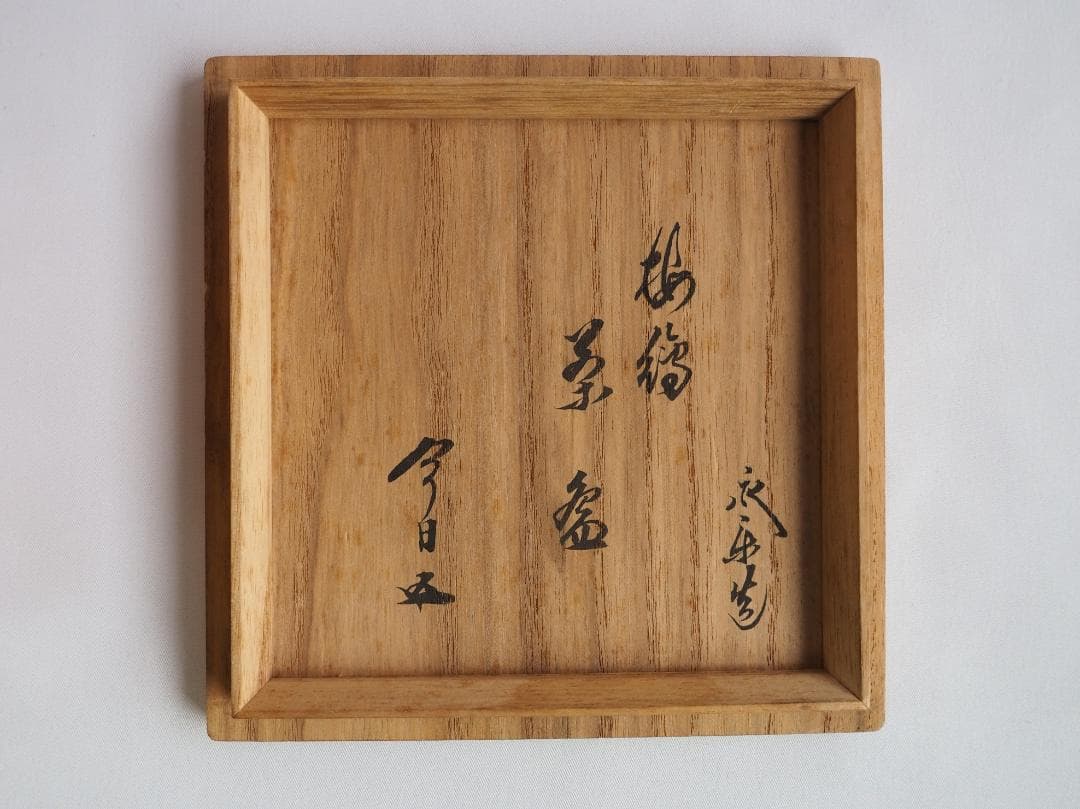 永楽造
梅繪
茶盌
今日